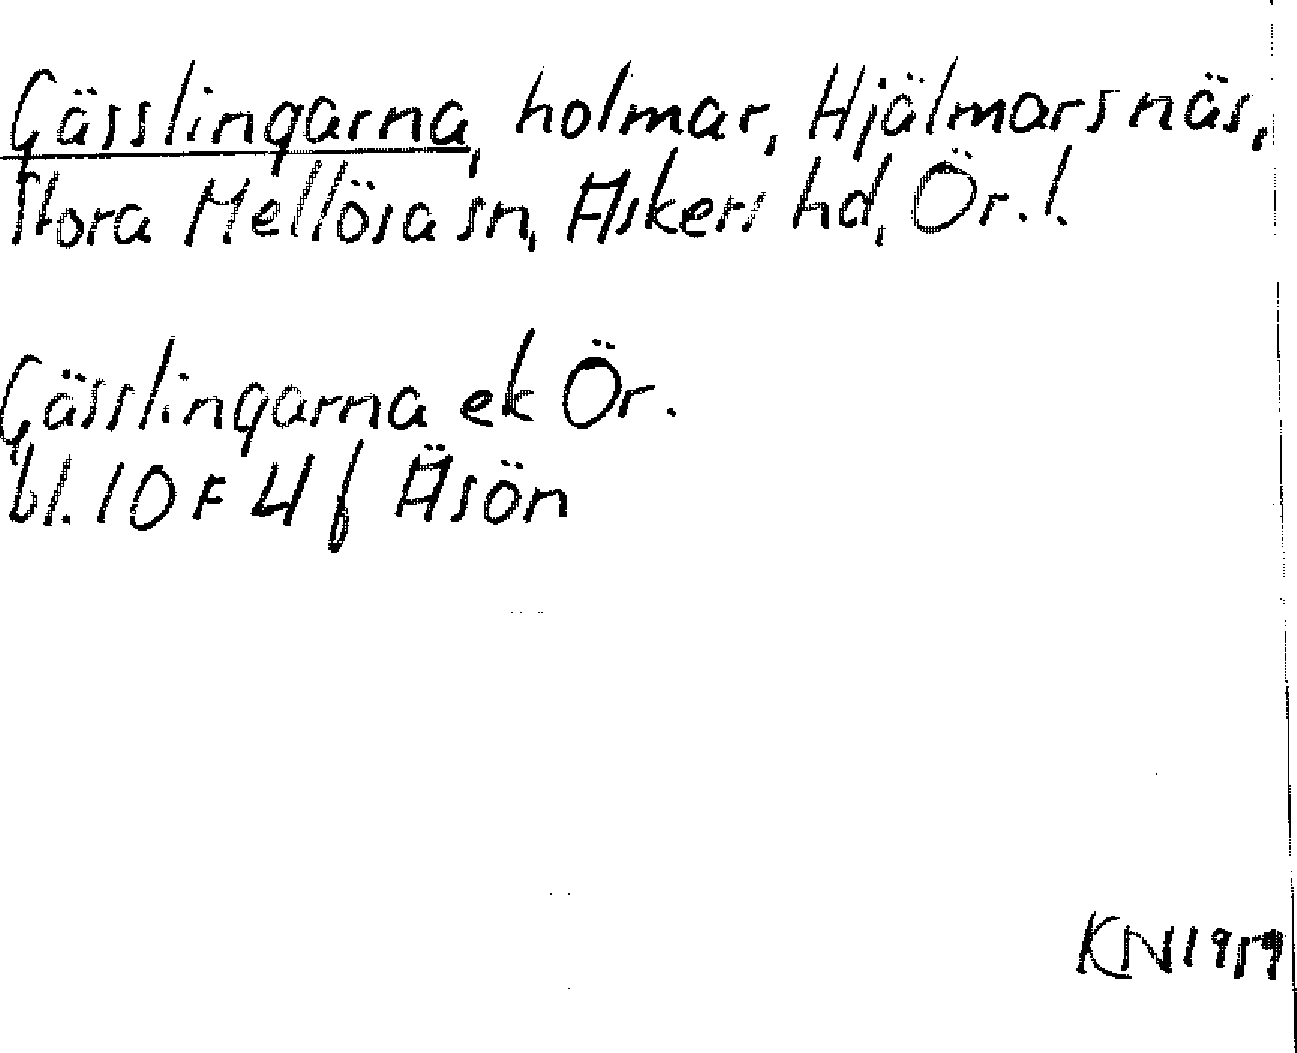 Gässlingarna, holmar, Hjälmarsnäs,
Stora Mellösa sn, Askers hd, Ör. l.
Gässlingarna ek Ör.
bl. 10 F 4 f Äsön
KN 1959